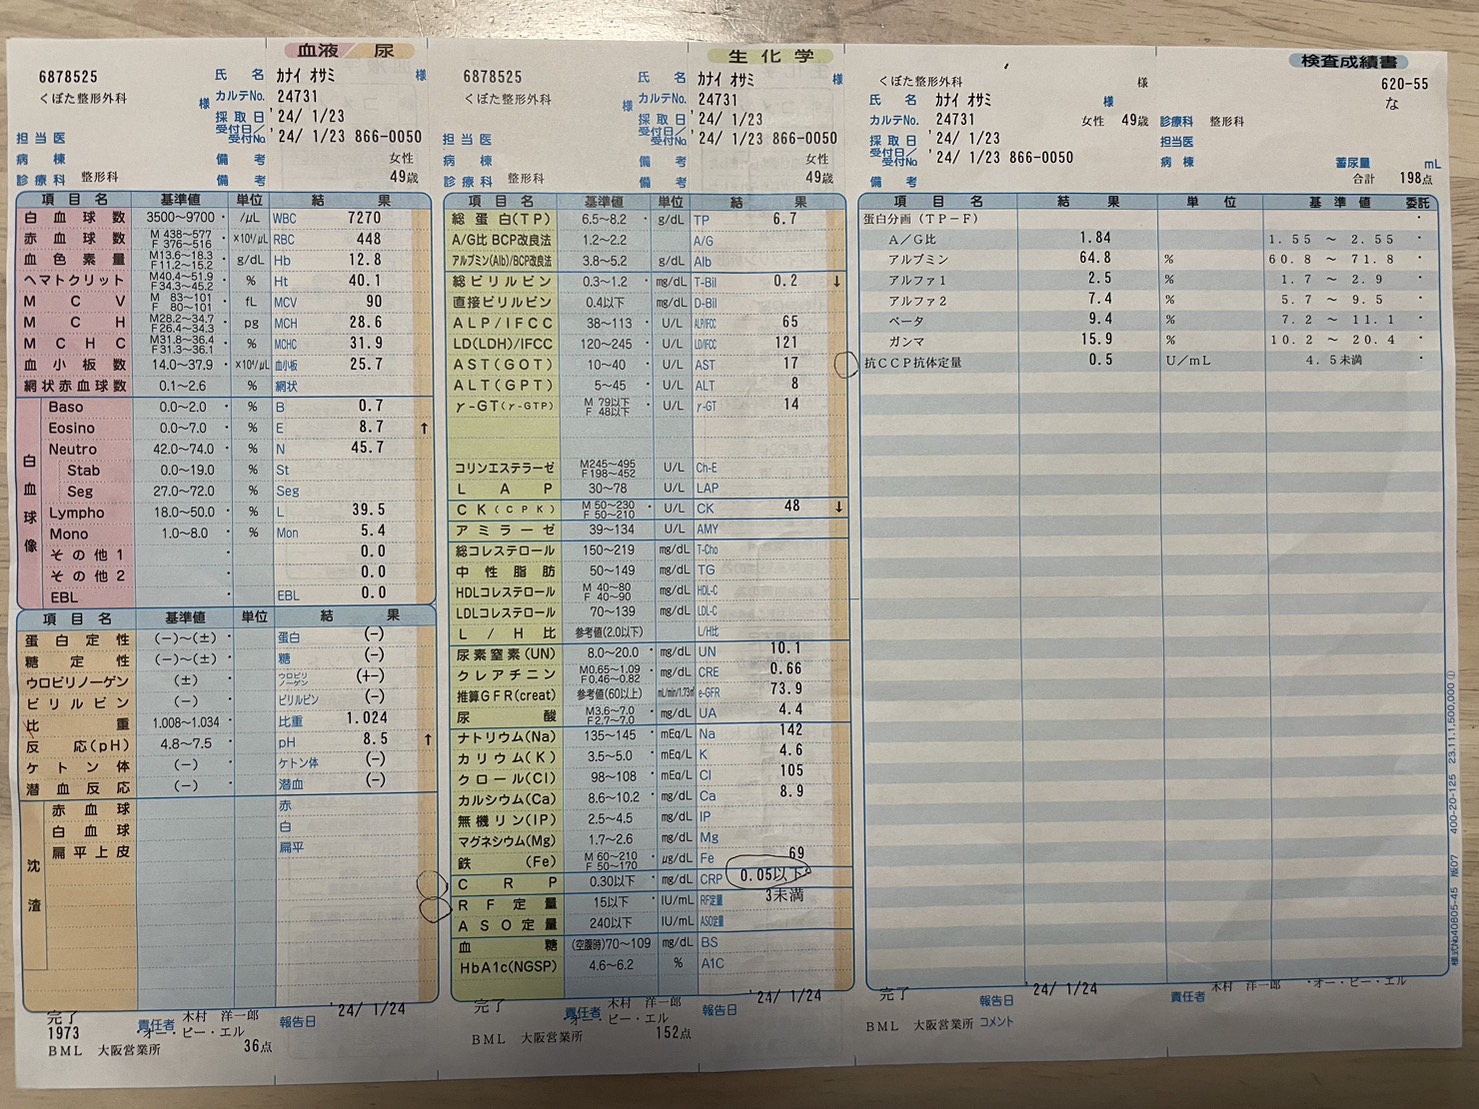 血液／尿
6878525
くぼた整形外科
様
氏 名 カナイ オサミ 様
カルテNo. 24731
採取日 '24/ 1/23
受付日／受付No '24/ 1/23 866-0050
担当医
病棟
備考 女性
診療科 整形科
備考 49歳
項目名 基準値 単位 結果
白血球数 3500〜9700 /μL WBC 7270
赤血球数 M 438〜577 F 376〜516 ×10⁴/μL RBC 448
血色素量 M13.6〜18.3 F11.2〜15.2 g/dL Hb 12.8
ヘマトクリット M40.4〜51.9 F34.3〜45.2 % Ht 40.1
MCV M 83〜101 F 80〜101 fL MCV 90
MCH M28.2〜34.7 F26.4〜34.3 pg MCH 28.6
MCHC M31.8〜36.4 F31.3〜36.1 % MCHC 31.9
血小板数 14.0〜37.9 ×10⁴/μL 血小板 25.7
網状赤血球数 0.1〜2.6 % 網状
白血球像
Baso 0.0〜2.0 % B 0.7
Eosino 0.0〜7.0 % E 8.7 ↑
Neutro 42.0〜74.0 % N 45.7
Stab 0.0〜19.0 % St
Seg 27.0〜72.0 % Seg
Lympho 18.0〜50.0 % L 39.5
Mono 1.0〜8.0 % Mon 5.4
その他1 0.0
その他2 0.0
EBL EBL 0.0
項目名 基準値 単位 結果
蛋白定性 (−)〜(±) 蛋白 (-)
糖定性 (−)〜(±) 糖 (-)
ウロビリノーゲン (±) ウロビリノーゲン (+-)
ビリルビン (−) ビリルビン (-)
比重 1.008〜1.034 比重 1.024
反応(pH) 4.8〜7.5 pH 8.5 ↑
ケトン体 (−) ケトン体 (-)
潜血反応 (−) 潜血 (-)
沈渣
赤血球 赤
白血球 白
扁平上皮 扁平
完了
1973
責任者 木村 洋一郎
・オー・ピー・エル
報告日 '24/ 1/24
BML 大阪営業所 36点
生化学
6878525
くぼた整形外科
様
氏 名 カナイ オサミ 様
カルテNo. 24731
採取日 '24/ 1/23
受付日／受付No '24/ 1/23 866-0050
担当医
病棟
備考 女性
診療科 整形科
備考 49歳
項目名 基準値 単位 結果
総蛋白(TP) 6.5〜8.2 g/dL TP 6.7
A/G比 BCP改良法 1.2〜2.2 A/G
アルブミン(Alb)/BCP改良法 3.8〜5.2 g/dL Alb
総ビリルビン 0.3〜1.2 mg/dL T-Bil 0.2 ↓
直接ビリルビン 0.4以下 mg/dL D-Bil
ALP/IFCC 38〜113 U/L ALP/IFCC 65
LD(LDH)/IFCC 120〜245 U/L LD/IFCC 121
AST(GOT) 10〜40 U/L AST 17
ALT(GPT) 5〜45 U/L ALT 8
γ-GT(γ-GTP) M 79以下 F 48以下 U/L γ-GT 14
コリンエステラーゼ M245〜495 F198〜452 U/L Ch-E
LAP 30〜78 U/L LAP
CK(CPK) M 50〜230 F 50〜210 U/L CK 48 ↓
アミラーゼ 39〜134 U/L AMY
総コレステロール 150〜219 mg/dL T-Cho
中性脂肪 50〜149 mg/dL TG
HDLコレステロール M 40〜80 F 40〜90 mg/dL HDL-C
LDLコレステロール 70〜139 mg/dL LDL-C
L/H比 参考値(2.0以下) L/H比
尿素窒素(UN) 8.0〜20.0 mg/dL UN 10.1
クレアチニン M0.65〜1.09 F0.46〜0.82 mg/dL CRE 0.66
推算GFR(creat) 参考値(60以上) mL/min/1.73㎡ e-GFR 73.9
尿酸 M3.6〜7.0 F2.7〜7.0 mg/dL UA 4.4
ナトリウム(Na) 135〜145 mEq/L Na 142
カリウム(K) 3.5〜5.0 mEq/L K 4.6
クロール(Cl) 98〜108 mEq/L Cl 105
カルシウム(Ca) 8.6〜10.2 mg/dL Ca 8.9
無機リン(IP) 2.5〜4.5 mg/dL IP
マグネシウム(Mg) 1.7〜2.6 mg/dL Mg
鉄(Fe) M 60〜210 F 50〜170 μg/dL Fe 69
CRP 0.30以下 mg/dL CRP 0.05以下
RF定量 15以下 IU/mL RF定量 3未満
ASO定量 240以下 IU/mL ASO定量
血糖 (空腹時)70〜109 mg/dL BS
HbA1c(NGSP) 4.6〜6.2 % A1C
完了
責任者 木村 洋一郎
・オー・ピー・エル
報告日 '24/ 1/24
BML 大阪営業所 152点
検査成績書
くぼた整形外科 様
620-55
な
氏 名 カナイ オサミ 様
カルテNo. 24731 女性 49歳 診療科 整形科
採取日 '24/ 1/23 担当医
受付日／受付No '24/ 1/23 866-0050 病棟 蓄尿量 mL
備考 合計 198点
項目名 結果 単位 基準値 委託
蛋白分画(TP-F)
A/G比 1.84 1.55 〜 2.55
アルブミン 64.8 % 60.8 〜 71.8
アルファ1 2.5 % 1.7 〜 2.9
アルファ2 7.4 % 5.7 〜 9.5
ベータ 9.4 % 7.2 〜 11.1
ガンマ 15.9 % 10.2 〜 20.4
抗CCP抗体定量 0.5 U/mL 4.5未満
完了 報告日 '24/ 1/24 責任者 木村 洋一郎 ・オー・ピー・エル
BML 大阪営業所 コメント
様式No40805-45 版07 400-20-125 23.11.1,500,000 ①